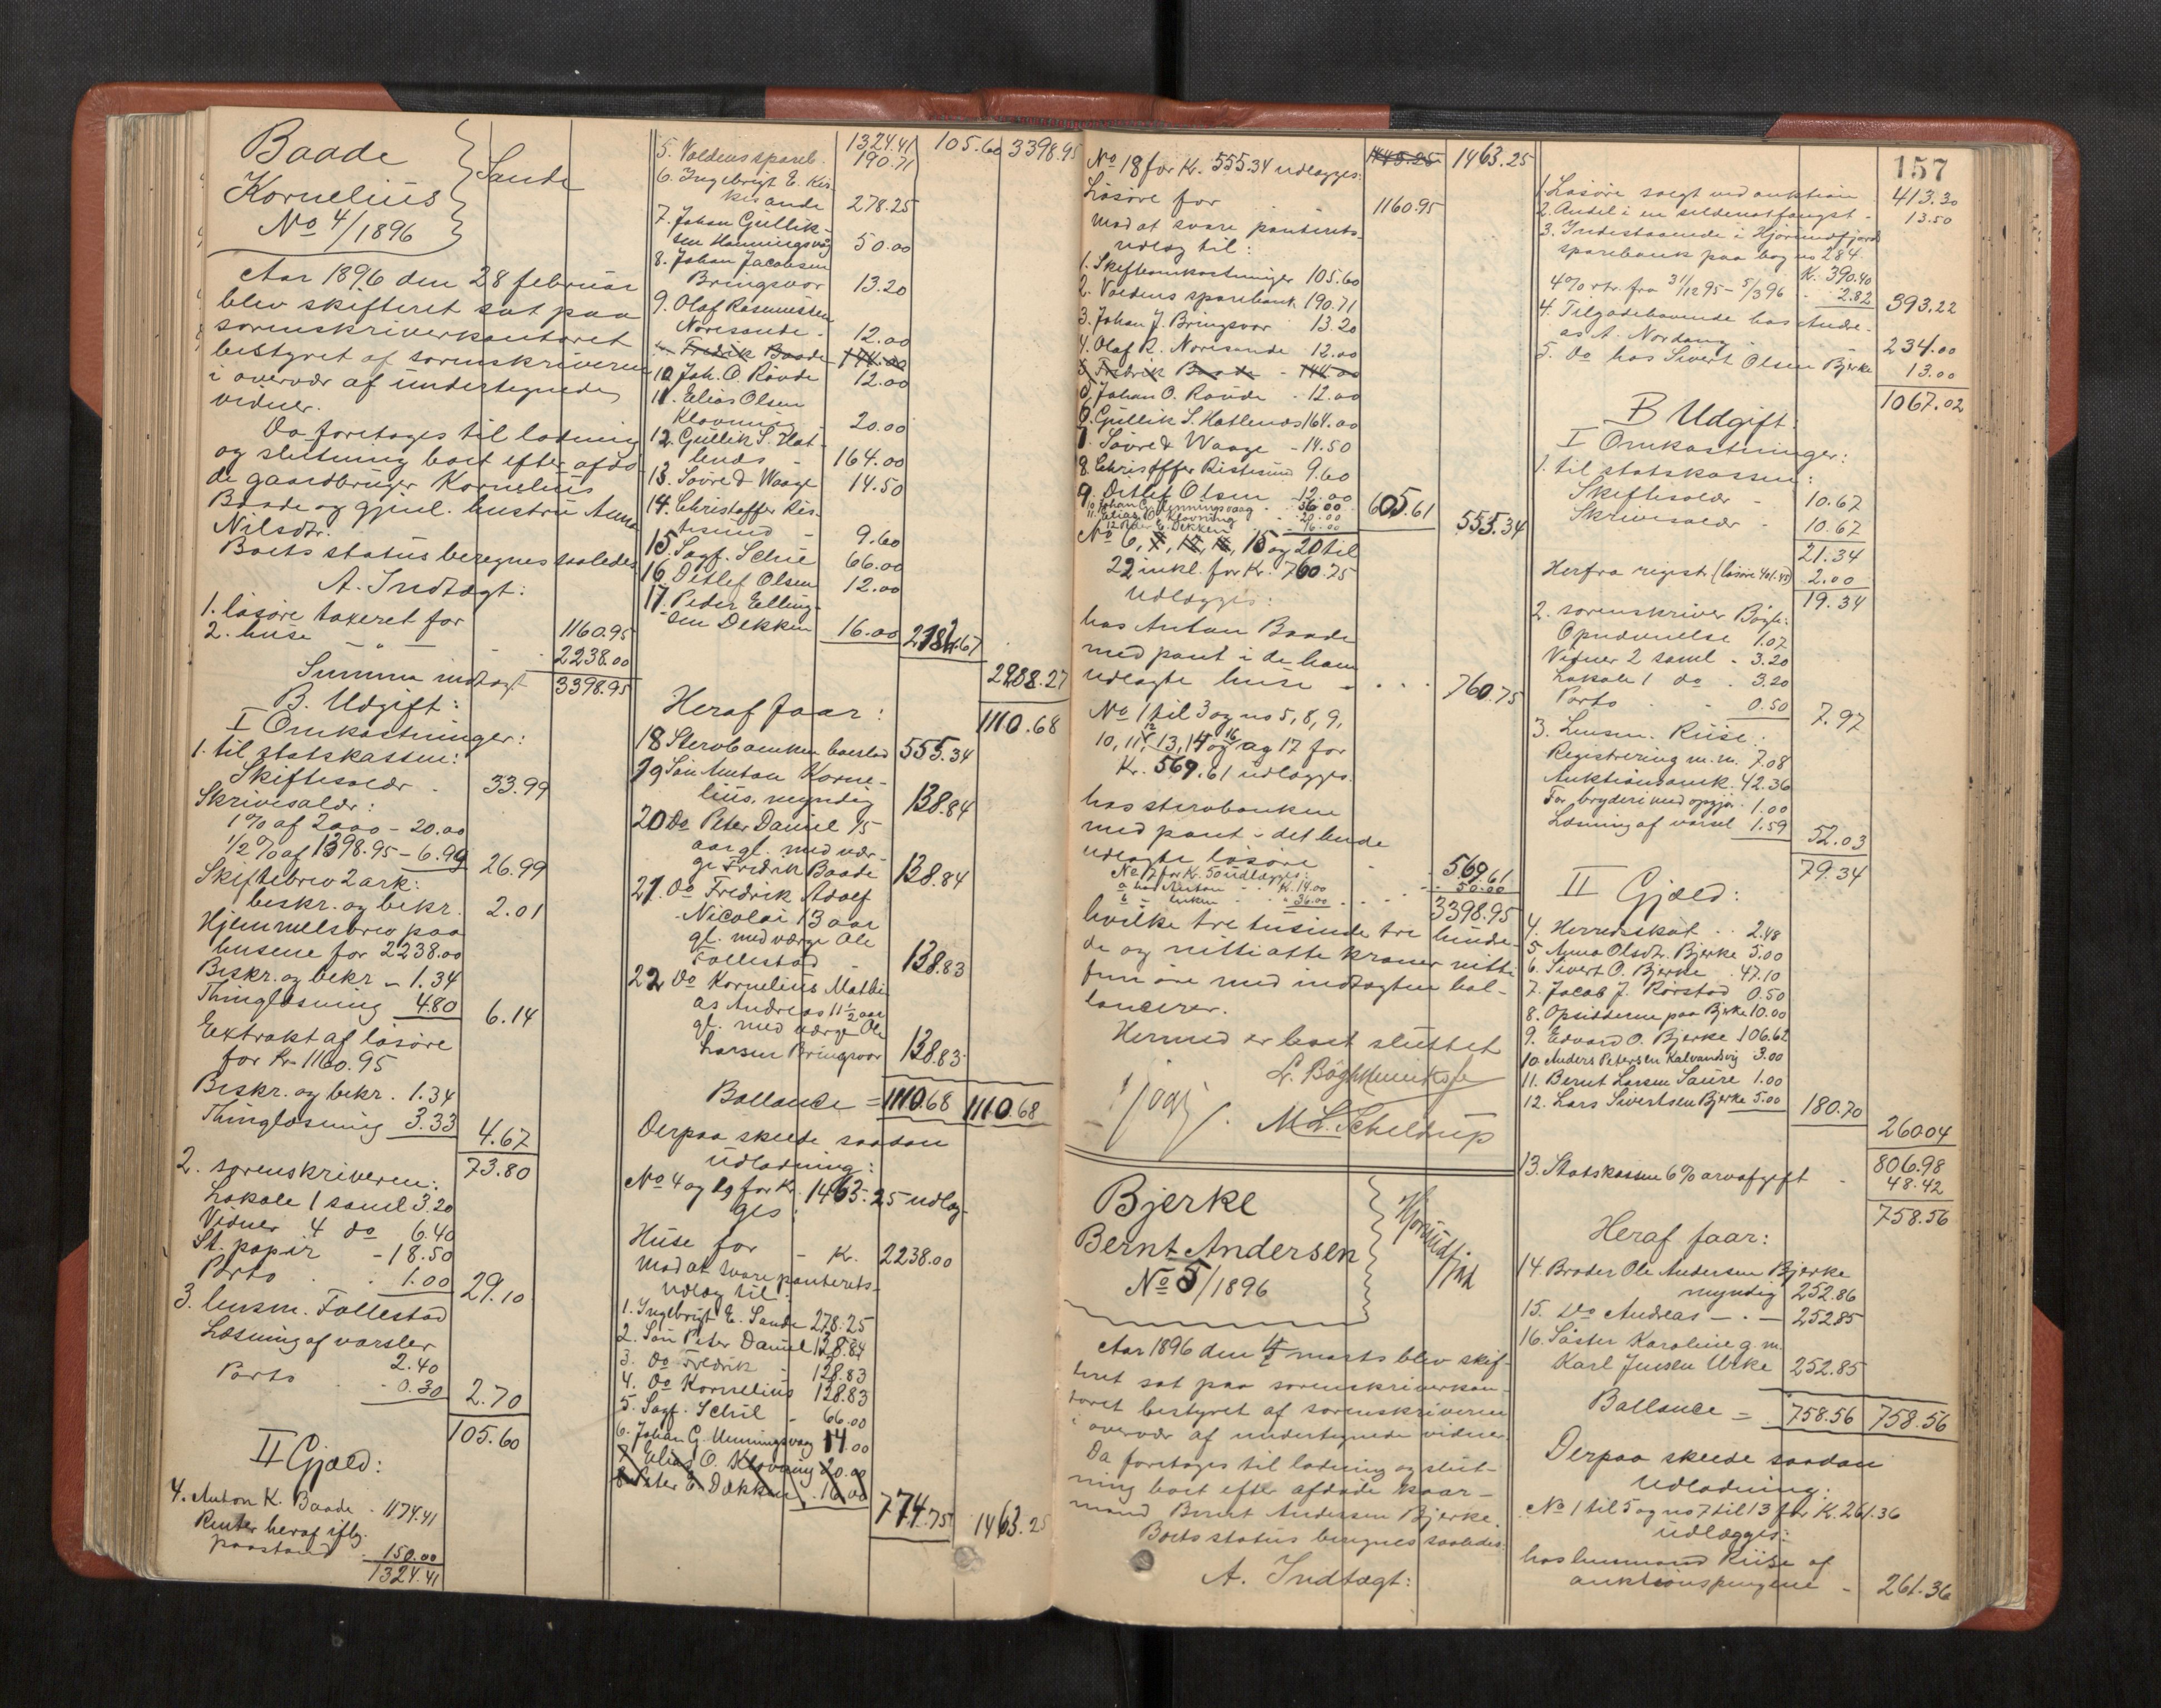 Baade
Kornelius
No 4/1896
Sande
Aar 1896 den 28 februar
blev skifteret sat paa
sorenskriverkontoret
bestyret af sorenskriveren
i overvær af undertegnede
vidner.
Da foretoges til lodning
og slutning boet efter afdø
de gaardbruger Kornelius
Baade og gjenl. hustru Anna
Nilsdtr.
Boets status beregnes saaledes
A. Indtægt:
1. løsøre taxeret for 1160.95
2. huse — " — 2238.00
Summa indtægt 3398.95
B. Udgift:
I Omkostninger:
1. til statskassen:
Skiftesalær - 33.99
Skrivesalær:
1% af 2000 - 20.00
1/2% af 1398.95 - 6.99 26.99
Skiftebrev 2 ark:
beskr. og bekr. 2.01
Hjemmelsbrev paa
husene for 2238.00
Beskr. og bekr - 1.34
Thinglæsning 4.80 6.14
Extrakt af løsøre
for Kr. 1160.95
Beskr. og bekr. 1.34
Thinglæsning 3.33 4.67
73.80
2. sorenskriveren:
Lokale 1 saml 3.20
Vidner 4 do 6.40
St. papir - 18.50
Porto . . 1.00 29.10
3. lensm. Follestad
Læsning af varsler
2.40
Porto - 0.30 2.70
105.60
II Gjæld:
4. Anton K. Baade - 1174.41
Renter heraf iflg.
paastand - 150.00
1324.41
1324.41 105.60 3398.95
5. Voldens spareb. 190.71
6. Ingebrigt E. Kir-
kesande 278.25
7. Johan Gullik-
sen Henningsvåg 50.00
8. Johan Jacobsen
Bringsvor 13.20
9. Olaf Rasmussen
Noresande - 12.00
Fredrik Baade 144.00
10 Joh. O. Røvde 12.00
11. Elias Olsen
Klovning - 20.00
12. Gullik S. Hat-
lenæs - 164.00
13. Søvre & Waage 14.50
14. Christoffer Ris-
tesund - 9.60
15. Sagf. Schie 66.00
16. Ditlef Olsen 12.00
17. Peder Elling-
sen Dekken 16.00 2182.67
2288.27
Heraf faar: 1110.68
18 Stervboenken boeslod 555.34
19 Søn Anton Korne-
lius, myndig 138.84
20 Do Peter Daniel 15
aar gl. med vær-
ge Fredrik Baade 138.84
21. Do Fredrik Adolf
Nicolai 13 aar
gl. med værge Ole
Follestad - 138.83
22 Do Kornelius Mathi
as Andreas 11 1/2 aar
gl. med værge Ole
Larsen Bringsvor 138.83
Ballance = 1110.68 1110.68
Derpaa skeede saadan
udlodning:
No 4 og 19 for Kr. 1463.25 udlæg-
ges:
Huse for - Kr. 2238.00
Mod at svare panterets-
udlæg til:
1. Ingebrigt E. Sande 278.25
2. Søn Peter Daniel 138.84
3. Do Fredrik - 138.83
4. Do Kornelius 138.83
5. Sagf. Schie - 66.00
6. Johan G. Henningsvaag 14.00
7 Elias O. Klovning 20.00
8 Peter E. Dekken . 16.00
774.75 1463.25
No 18 for Kr. 555.34 udlægges: 1445.25 1463.25
Løsøre for 1160.95
Mod at svare panterets-
udlæg til:
1. Skifteomkostninger 105.60
2. Voldens sparebank 190.71
3. Johan J. Bringsvor 13.20
4. Olaf R. Noresande - 12.00
5 Fredrik Baade - 144.00
5. Johan O. Røvde . 12.00
6. Gullik S. Hatlenæs 164.00
7. Søvre & Waage - 14.50
8. Christoffer Ristesund 9.60
9. Ditlef Olsen - 12.00
10 Johan G. Henningsvaag - 36.00 605.61
11. Elias O. Klovning - 20.00
12 Peder E. Dekken - 16.00 555.34
No 6, 7, 15 og 20 til
22 inkl. for Kr. 760.75
udlægges:
hos Anton Baade
med pant i de ham
udlagte huse - . . . 760.75
No 1 til 3 og no 5, 8, 9,
10, 11, 12, 13, 14 og 16 og 17 for
Kr. 569.61 udlægges
hos stervboenken
med pant i det hende
udlagte løsøre - 569.61
No 7 for K. 50 udlægges: 50.00
a hos Anton - - K. 14.00
b " enken - - " 36.00 3398.95
hvilke tre tusinde tre hunde-
de og nitti otte kroner nitti
fem øre med indtægten bal-
lancerer.
Hermed er boet sluttet
M. L. Scheldrup
Bjerke
Bernt Andersen
No 5/1896
Hjørundfj.
Aar 1896 den marts blev skif-
teret sat paa sorenskriverkon-
toret bestyret af sorenskriveren
i overvær af undertegnede vidner.
Da foretoges til lodning og slut-
ning boet efter afdøde kaar-
mand Bernt Andersen Bjerke.
Boets status beregnes saaledes:
A. Indtægt:
157
1. Løsøre solgt ved auktion - 413.30
2. Andel i en sildenotfangst - 13.50
3. Indestaaende i Hjørundfjord
sparebank paa bog no 284
K. 390.40
4% rtr. fra 31/12 95 - 5/3 96 . 2.82 393.22
4. Tilgodehavende hos Andre-
as A. Nordang - 234.00
5. Do hos Sivert Olsen Bjerke 13.00
1067.02
B Udgift:
I Omkostninger:
1. til statskassen:
Skiftesalær - 10.67
Skrivesalær - 10.67
21.34
Herfra regist. (løsøre 401.45) 2.00
19.34
2. sorenskriver Bøgh:
Opnævnelse 1.07
Vidner 2 saml - 3.20
Lokale 1 do . 3.20
Porto . - 0.50 7.97
3. Lensm. Riise:
Registrering m. m. 7.08
Auktionsomk. 42.36
For bryderi med opgjør - 1.00
Læsning af varsel 1.59 52.03
79.34
II Gjæld:
4. Herredskat . . 2.48
5 Anna Olsdtr. Bjerke 5.00
6. Sivert O. Bjerke . 47.10
7. Jacob J. Rørstad 0.50
8. Opsidderne paa Bjerke 10.00
9. Edvard O. Bjerke 106.62
10. Anders Petersen Kalvandsvig 3.00
11. Bernt Larsen Saure 1.00
12. Lars Sivertsen Bjerke 5.00 180.70
260.04
806.98
13. Statskassen 6% arveafgift - 48.42
758.56
Heraf faar:
14. Broder Ole Andersen Bjerke
myndig 252.86
15. Do Andreas — . — 252.85
16. Søster Karoline g. m.
Karl Jensen Urke 252.85
Ballance = 758.56 758.56
Derpaa skeede saadan
udlodning:
No 1 til 5 og no 7 til 13 for K. 261.36
udlægges:
hos lensmand Riise af
auktionspengene - 261.36